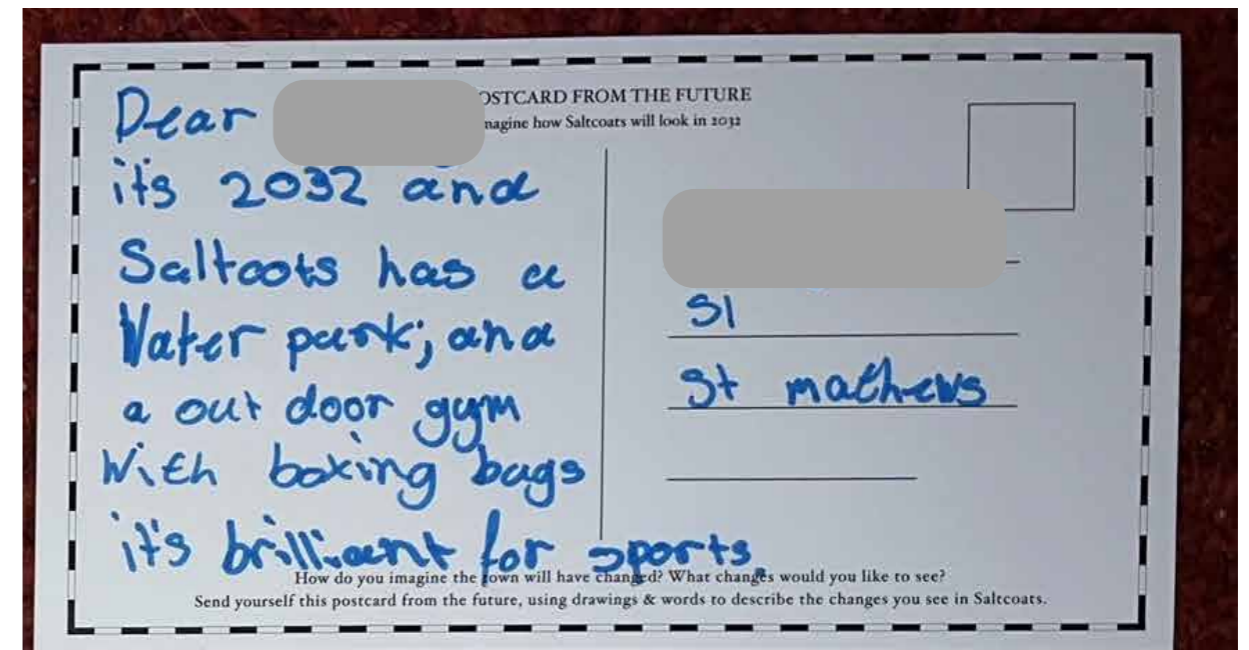 Dear
OSTCARD FROM THE FUTURE
nagine how Saltcoats will look in 2032
its 2032 and
Saltcoots has a
Water park; and
a out door gym
With boxing bags
it's brilliant for sports.
S1
St mathews
How do you imagine the town will have changed? What changes would you like to see?
Send yourself this postcard from the future, using drawings & words to describe the changes you see in Saltcoats.